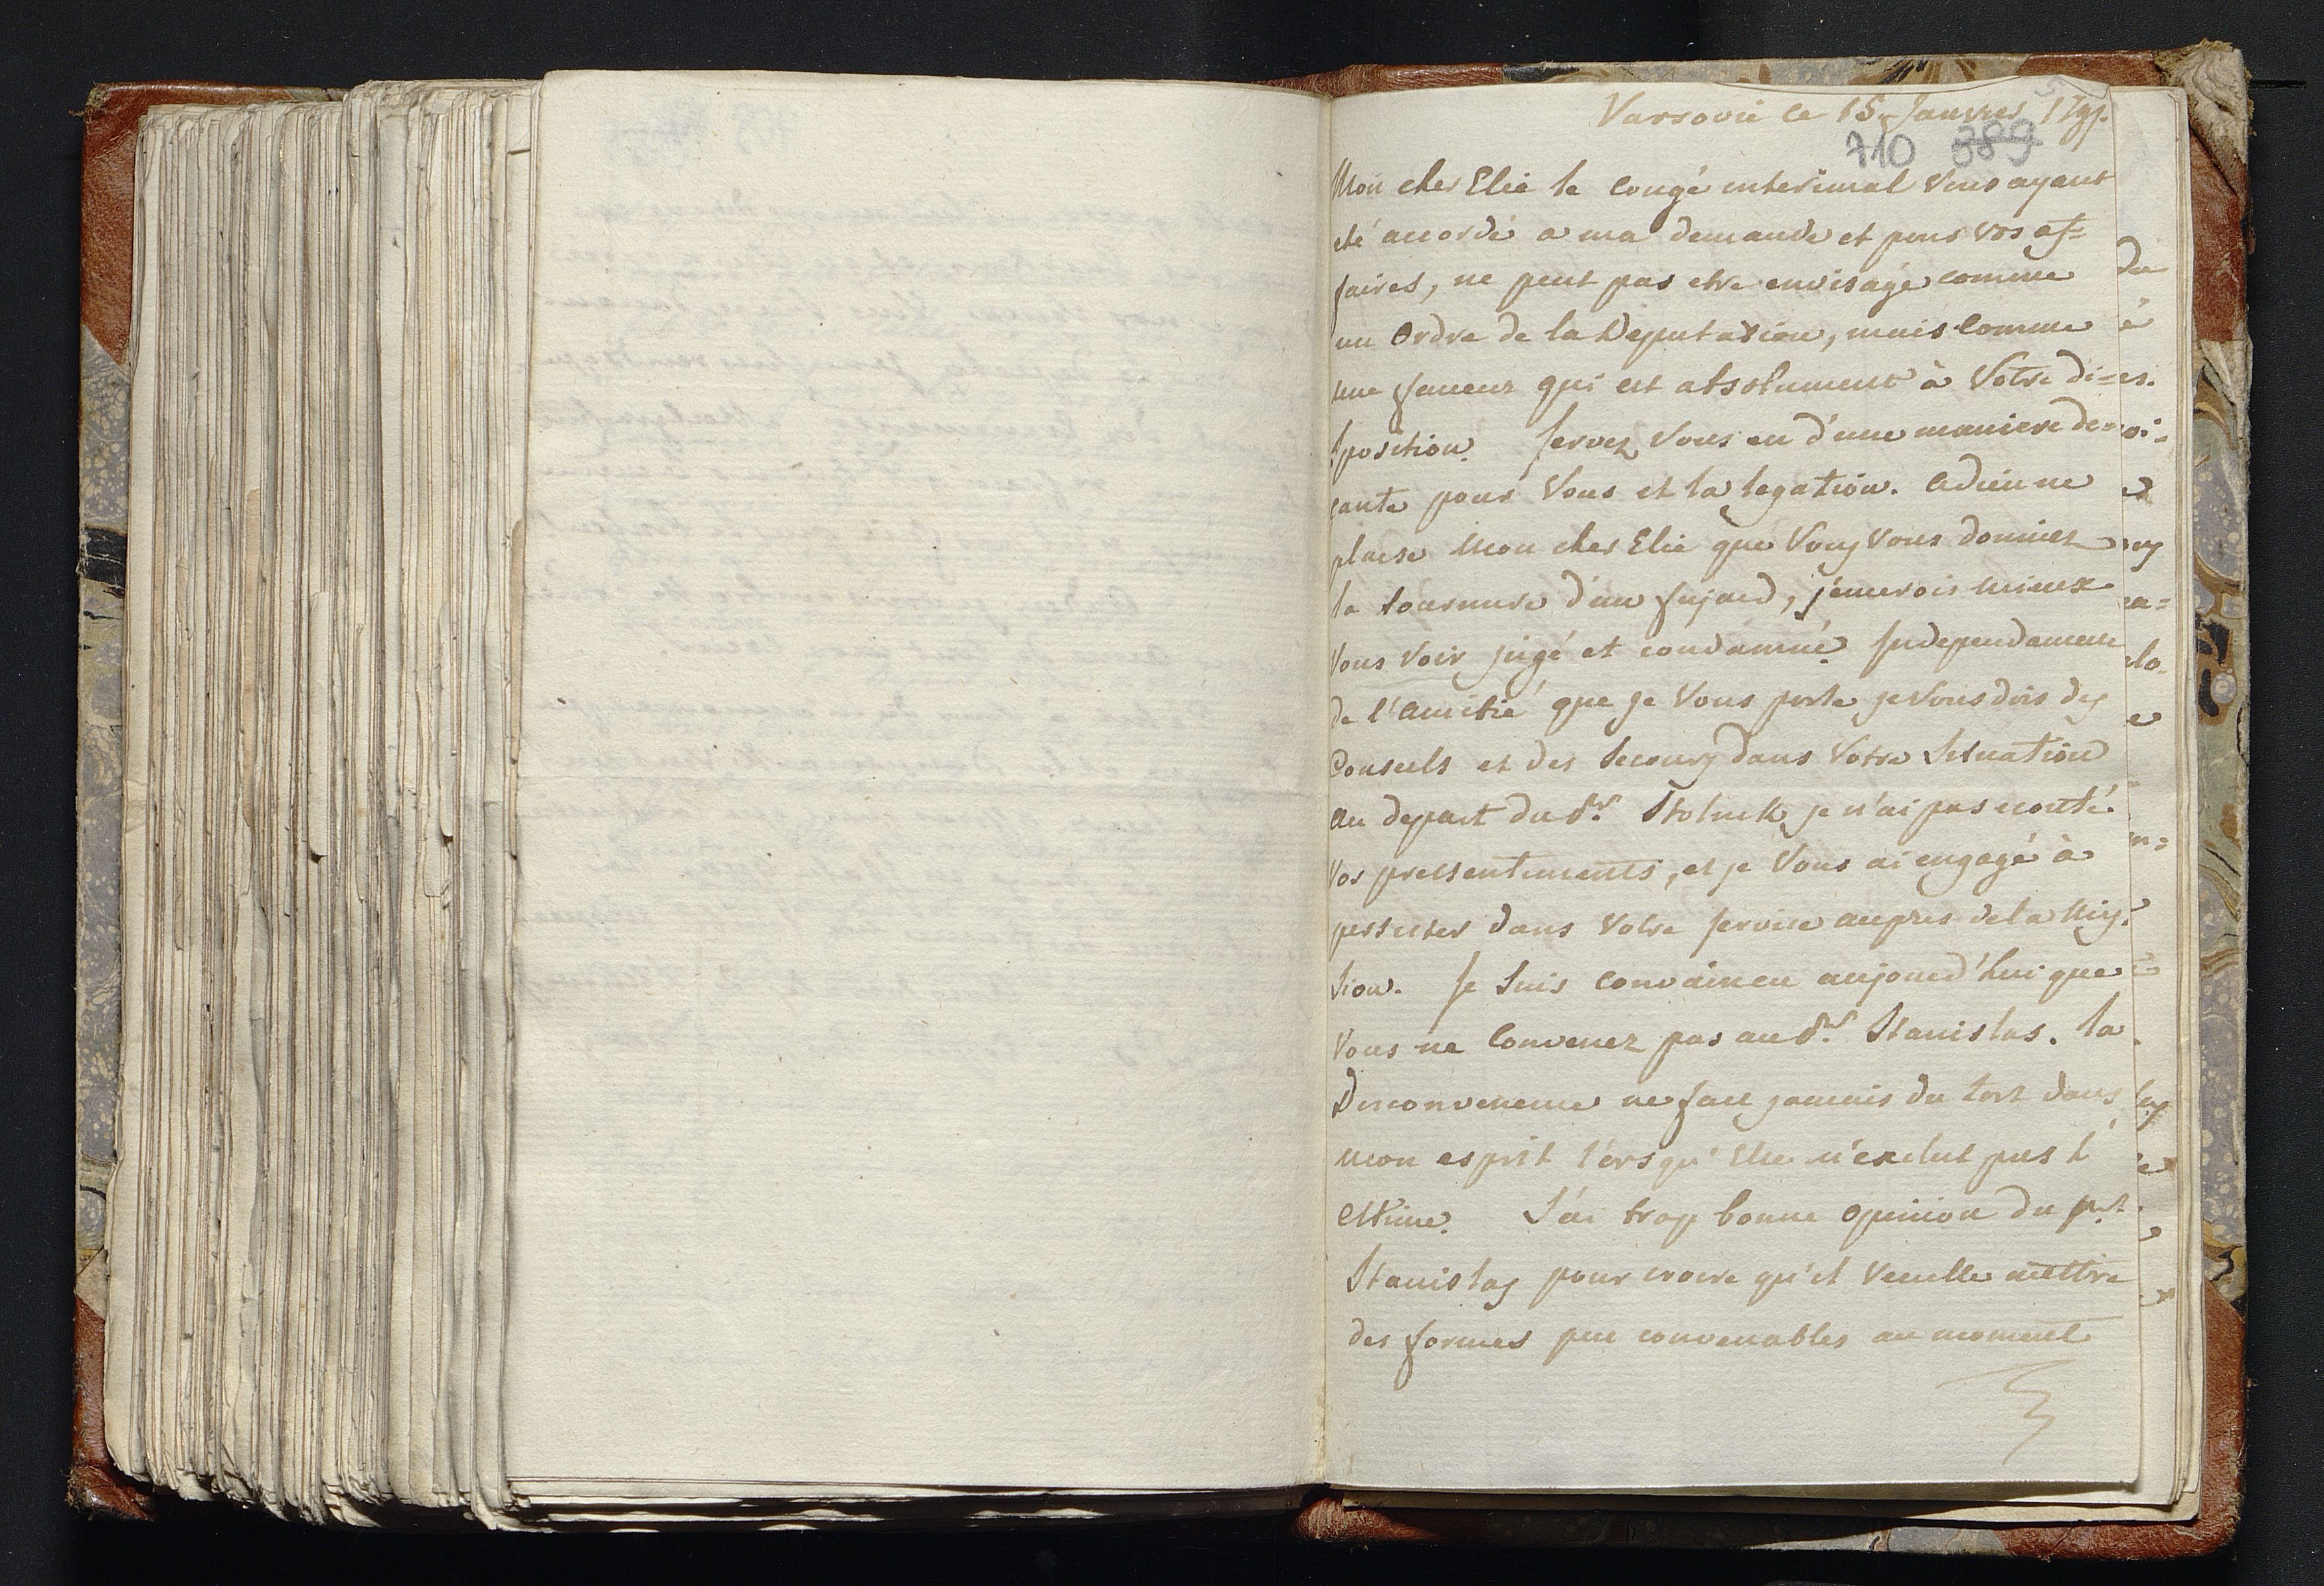 Varsovie le 15 Janvier 1791.
710 389
Mon cher Elie le Congé interimal Vous ayant
eté accordé a ma demande et pour vos af=
faires, ne peut pas etre envisagé comme
un Ordre de la Deputation, mais Comme
une faveur qui est absolument à Votre di=
sposition. Servez Vous en d'une maniere de=
cante pour Vous et la legation. a dieu ne
plaise Mon cher Elie que Vous Vous donniez
la tournure d'un fujard, j'aimerois mieux
Vous Voir jugé et condamné. Independament
de l'amitié que je Vous porte je Vous dois des
Conseils et des Secours dans Votre Situation
au depart du Stolnik je n'ai pas ecouté
Vos pressentiments, et je Vous ai engagé à
persister dans Votre Service aupres de la Mis=
sion. Je Suis Convaincu aujourd'hui que
Vous ne Convenez pas au Stanislas. la
Disconvenence ne fait jamais du tort dans
mon esprit l'orsqu'Elle n'exclut pas l'
estime. J'ai trop bonne opinion du
Stanislas pour croire qu'il Veuille mettre
des formes peu convenables au moment